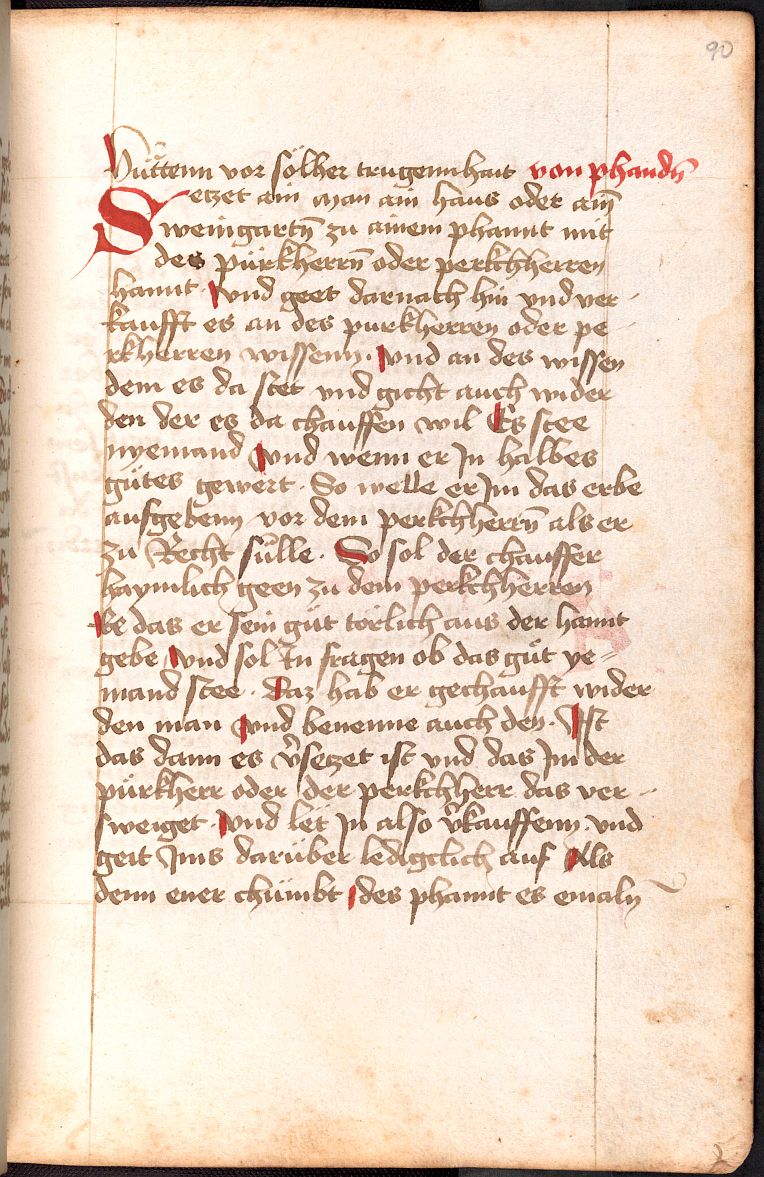 90
hüttenn vor sölher trugennhait von phandn̄
Setzet ain man ain haus oder ain̄
weingartn̄ zu ainem phannt mit
des pürkherrn̄ oder perkchherren
hannt · vnd geet darnach hin vnd ver-
kaufft es an des purkherren oder pe-
rkherren wissenn · vnd an des wissen
dem es da stet vnd gicht auch wider
den der es da chauffen wil Es stee
nyemand vnd wenn er jn halbes
gůtes gewert · So welle er jm das erbe
aufgebenn vor dem perkchherrn̄ als er
zu Recht sülle · So sol der chauffer
haymlich geen zu dem perkchherren
Ee das er sein gůt torlich aus der hannt
gebe vnd sol In fragen ob das gůt ye=
mand stee · daz hab er gechaufft wider
den man vnd benenne auch den · Ist
das dann es v̄setzet ist vnd das jm der
pürkherr oder der perkchherr das ver-
sweiget · vnd let jn also v̄kauffenn · vnd
geit jms darüber lediglich auf Als
denn ener chümbt des phannt es emaln